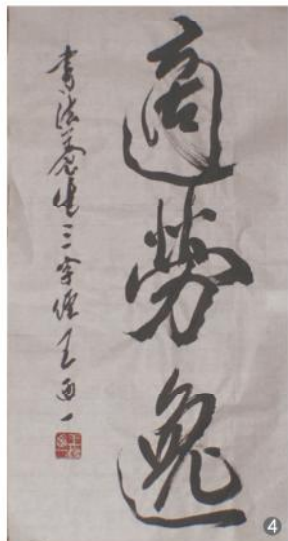 適勞逸
書法養生三字經 王西一
4